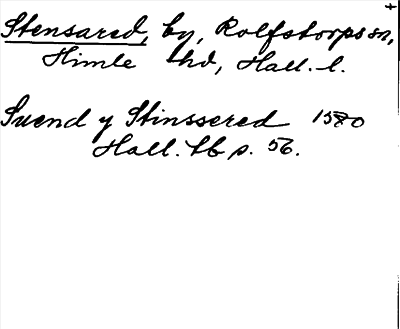 Stensared, by, Rolfstorps sn,
Himle hd, Hall. l.
Suend y Stinssered 1580
Hall. tb p. 56.